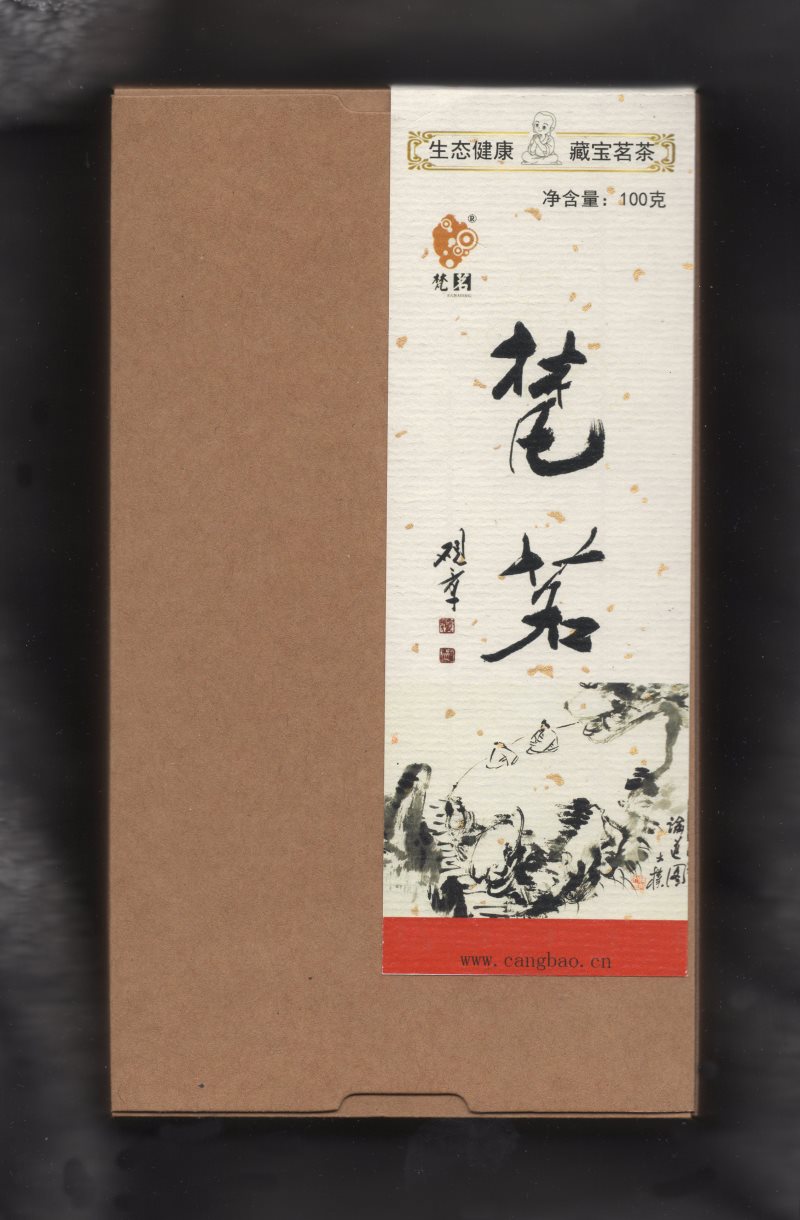 生态健康 藏宝茗茶
净含量：100克
®
梵茗
梵
茗
论道图
www.cangbao.cn